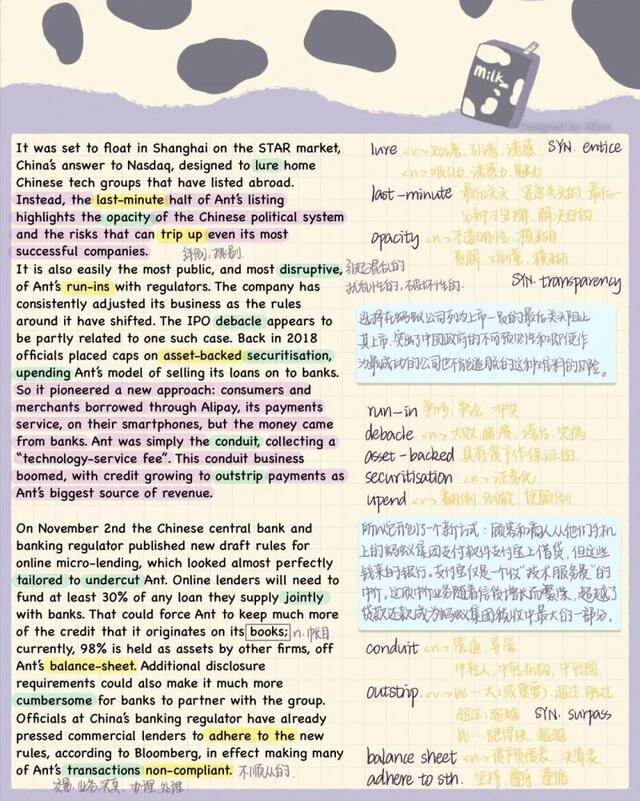 milk
It was set to float in Shanghai on the STAR market,
China's answer to Nasdaq, designed to lure home
Chinese tech groups that have listed abroad.
Instead, the last-minute halt of Ant's listing
highlights the opacity of the Chinese political system
and the risks that can trip up even its most
successful companies.
It is also easily the most public, and most disruptive,
of Ant's run-ins with regulators. The company has
consistently adjusted its business as the rules
around it have shifted. The IPO debacle appears to
be partly related to one such case. Back in 2018
officials placed caps on asset-backed securitisation,
upending Ant's model of selling its loans on to banks.
So it pioneered a new approach: consumers and
merchants borrowed through Alipay, its payments
service, on their smartphones, but the money came
from banks. Ant was simply the conduit, collecting a
"technology-service fee". This conduit business
boomed, with credit growing to outstrip payments as
Ant's biggest source of revenue.
On November 2nd the Chinese central bank and
banking regulator published new draft rules for
online micro-lending, which looked almost perfectly
tailored to undercut Ant. Online lenders will need to
fund at least 30% of any loan they supply jointly
with banks. That could force Ant to keep much more
of the credit that it originates on its books; n. 帐目
currently, 98% is held as assets by other firms, off
Ant's balance-sheet. Additional disclosure
requirements could also make it much more
cumbersome for banks to partner with the group.
Officials at China's banking regulator have already
pressed commercial lenders to adhere to the new
rules, according to Bloomberg, in effect making many
of Ant's transactions non-compliant. 不顺从的
交易, 业务, 买卖, 办理, 处理
lure <v> 劝诱, 引诱, 诱惑 SYN. entice
<n> 吸引力, 诱惑力, 魅力
last-minute 最后关头, 紧急关头的, 最后一
opacity <n> 不透明性, 模糊
SYN. transparency
引起混乱的
扰乱性的, 破坏性的.
选择在蚂蚁公司列功上市一般的最后关头阻止
其上市, 突出了中国政府的不可预见性和即使作
为最成功的公司也不能逃脱的这种难料的风险。
run-in 争吵, 争论, 冲突
debacle <n> 大败, 崩溃, 垮台, 灾祸
asset-backed 具有资产作保证的.
securitisation <n> 证券化
upend <v>
所以它开创了一个新方式: 顾客和商人从他们手机
上的蚂蚁集团支付软件支付宝上借贷, 但这些
钱来自银行。支付宝仅是一个收"技术服务费"的
中介。这项中介业务随着信贷增长而繁荣, 超越了
贷款还款成为蚂蚁集团税收中最大的一部分。
conduit <n> 管道, 导管
中转人, 中转机构, 中转国
outstrip <v> 比…大(或重要), 超过, 胜过
超过, 超越 SYN. surpass
比…跑得快, 超越
balance sheet <n> 资产负债表, 决算表
adhere to sth. 坚持, 遵守, 遵循